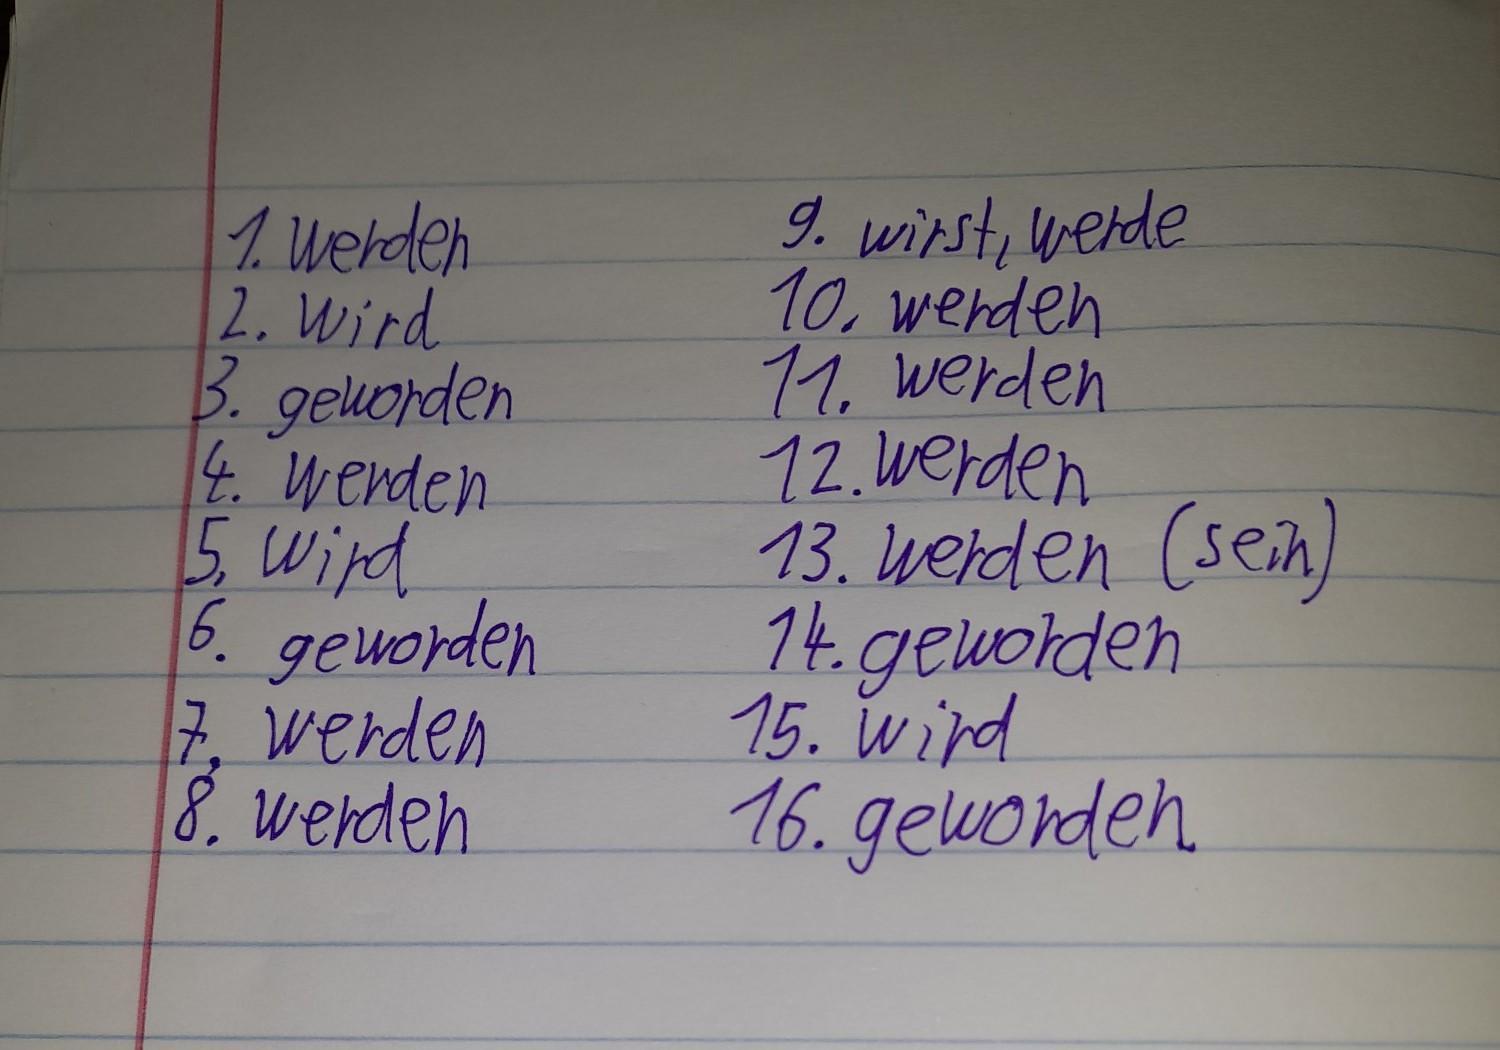 1. werden
2. wird
3. geworden
4. werden
5. wird
6. geworden
7. werden
8. werden
9. wirst, werde
10. werden
11. werden
12. werden
13. werden (sein)
14. geworden
15. wird
16. geworden